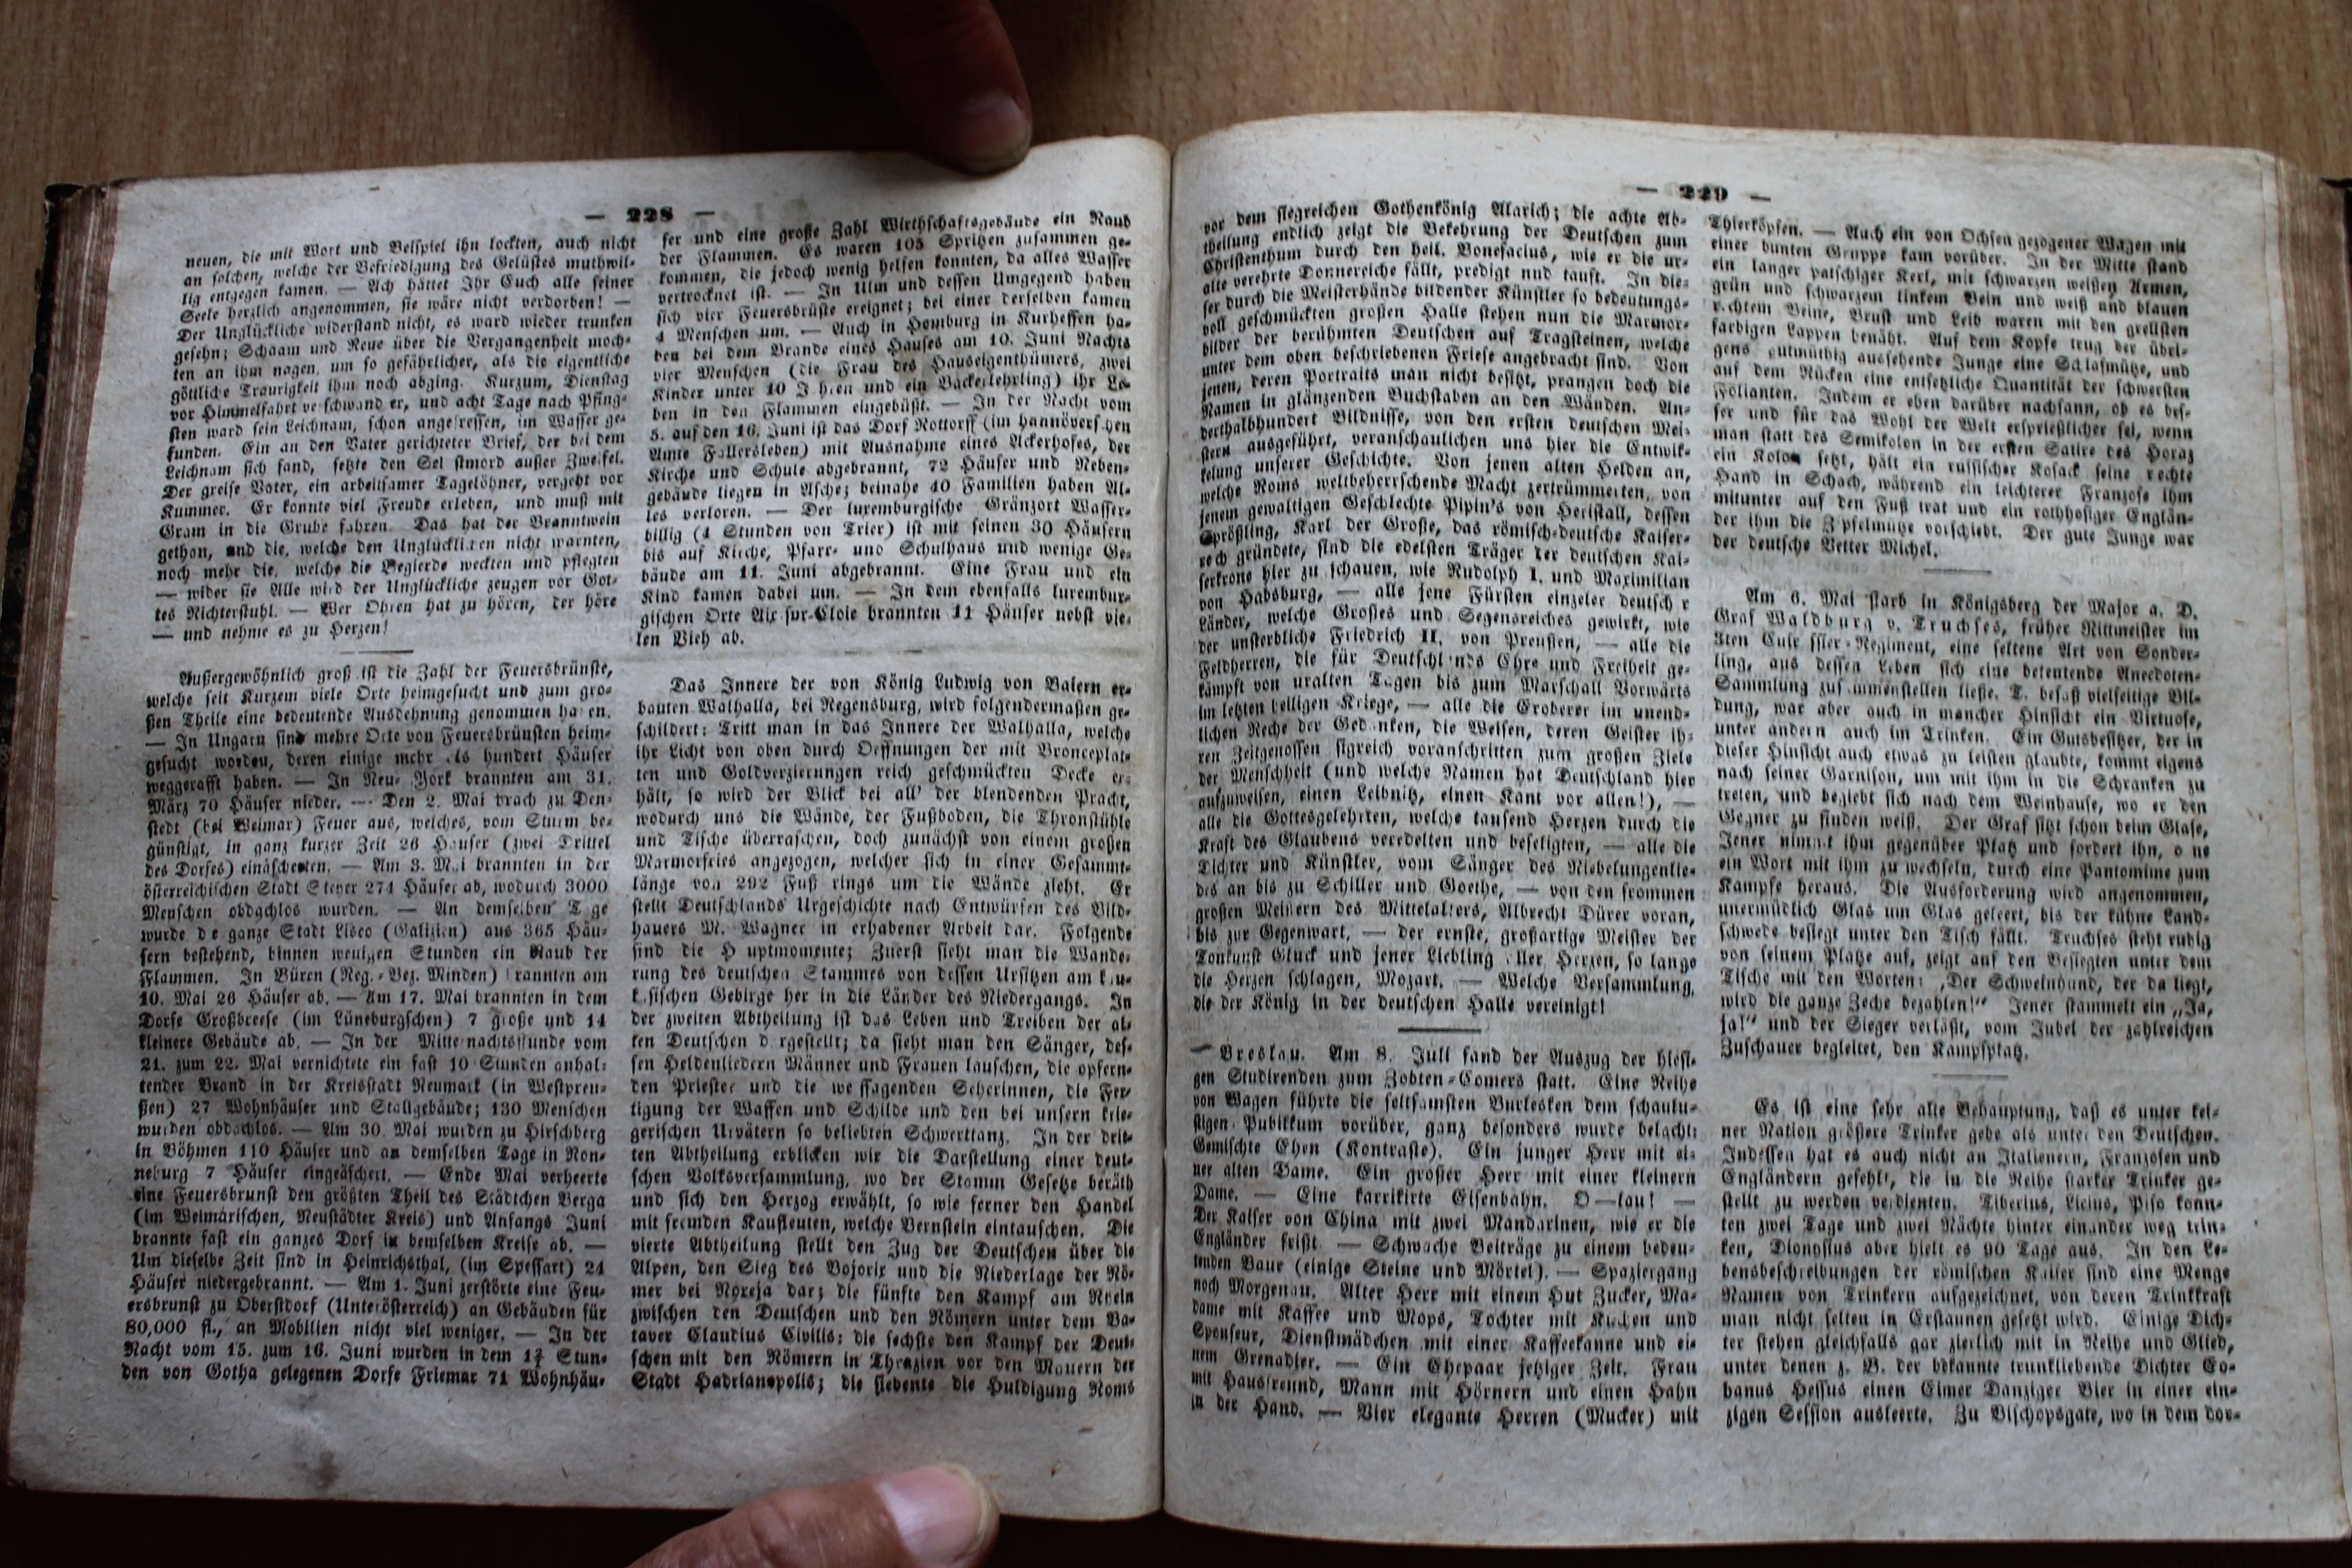 — 228 —
neuen, die mit Wort und Beispiel ihn lockten, auch nicht
an solchen, welche der Befriedigung des Gelüstes muthwil-
lig entgegen kamen. — Ach hättet Ihr Euch alle seiner
Seele herzlich angenommen, sie wäre nicht verdorben! —
Der Unglückliche widerstand nicht, es ward wieder trunken
gesehn; Schaam und Reue über die Vergangenheit moch-
ten an ihm nagen, um so gefährlicher, als die eigentliche
göttliche Traurigkeit ihm noch abging. Kurzum, Dienstag
vor Himmelfahrt verschwand er, und acht Tage nach Pfing-
sten ward sein Leichnam, schon angefressen, im Wasser ge-
funden. Ein an den Vater gerichteter Brief, der bei dem
Leichnam sich fand, setzte den Selbstmord außer Zweifel.
Der greise Vater, ein arbeitsamer Tagelöhner, vergeht vor
Kummer. Er konnte viel Freude erleben, und muß mit
Gram in die Grube fahren. Das hat der Branntwein
gethon, und die, welche den Unglücklichen nicht warnten,
noch mehr die, welche die Begierde weckten und pflegten
— wider sie Alle wird der Unglückliche zeugen vor Got-
tes Richterstuhl. — Wer Ohren hat zu hören, der höre
— und nehme es zu Herzen!
Außergewöhnlich groß ist die Zahl der Feuersbrünste,
welche seit Kurzem viele Orte heimgesucht und zum gro-
ßen Theile eine bedeutende Ausdehnung genommen haben.
— In Ungarn sind mehre Orte von Feuersbrünsten heim-
gesucht worden, deren einige mehr als hundert Häuser
weggerafft haben. — In Neu-York brannten am 31.
März 70 Häuser nieder. — Den 2. Mai brach zu Den-
stedt (bei Weimar) Feuer aus, welches, vom Sturm be-
günstigt, in ganz kurzer Zeit 26 Häuser (zwei Drittel
des Dorfes) einäscherten. — Am 3. Mai brannten in der
österreichischen Stadt Steyer 274 Häuser ab, wodurch 3000
Menschen obdachlos wurden. — An demselben Tage
wurde die ganze Stadt Lisco (Galizien) aus 365 Häu-
sern bestehend, binnen wenigen Stunden ein Raub der
Flammen. In Büren (Reg.-Bez. Minden) brannten am
10. Mai 26 Häuser ab. — Am 17. Mai brannten in dem
Dorfe Großbreese (im Lüneburgschen) 7 große und 14
kleinere Gebäude ab. — In der Mitternachtsstunde vom
21. zum 22. Mai vernichtete ein fast 10 Stunden anhal-
tender Brand in der Kreisstadt Neumark (in Westpreu-
ßen) 27 Wohnhäuser und Stallgebäude; 130 Menschen
wurden obdachlos. — Am 30. Mai wurden zu Hirschberg
in Böhmen 110 Häuser und an demselben Tage in Ron-
neburg 7 Häuser eingeäschert. — Ende Mai verheerte
eine Feuersbrunst den größten Theil des Städtchen Berga
(im Weimarischen, Neustädter Kreis) und Anfangs Juni
brannte fast ein ganzes Dorf in demselben Kreise ab. —
Um dieselbe Zeit sind in Heinrichsthal, (im Spessart) 24
Häuser niedergebrannt. — Am 1. Juni zerstörte eine Feu-
ersbrunst zu Oberstdorf (Unterösterreich) an Gebäuden für
80,000 fl., an Mobilien nicht viel weniger. — In der
Nacht vom 15. zum 16. Juni wurden in dem 1¾ Stun-
den von Gotha gelegenen Dorfe Friemar 71 Wohnhäu-
ser und eine große Zahl Wirthschaftsgebäude ein Raub
der Flammen. Es waren 105 Spritzen zusammen ge-
kommen, die jedoch wenig helfen konnten, da alles Wasser
vertrocknet ist. — In Ulm und dessen Umgegend haben
sich vier Feuersbrüste ereignet; bei einer derselben kamen
4 Menschen um. — Auch in Homburg in Kurhessen ha-
ben bei dem Brande eines Hauses am 10. Juni Nachts
vier Menschen (die Frau des Hauseigenthümers, zwei
Kinder unter 10 Jahren und ein Bäckerlehrling) ihr Le-
ben in den Flammen eingebüßt. — In der Nacht vom
5. auf den 16. Juni ist das Dorf Rottorff (im hannöverschen
Amte Fallersleben) mit Ausnahme eines Ackerhofes, der
Kirche und Schule abgebrannt, 72 Häuser und Neben-
gebäude liegen in Asche; beinahe 40 Familien haben Al-
les verloren. — Der luxemburgische Gränzort Wasser-
billig (4 Stunden von Trier) ist mit seinen 30 Häusern
bis auf Kirche, Pfarr- und Schulhaus und wenige Ge-
bäude am 11. Juni abgebrannt. Eine Frau und ein
Kind kamen dabei um. — In dem ebenfalls luxembur-
gischen Orte Aix sur-Cloie brannten 11 Häuser nebst vie-
len Vieh ab.
Das Innere der von König Ludwig von Baiern er-
bauten Walhalla, bei Regensburg, wird folgendermaßen ge-
schildert: Tritt man in das Innere der Walhalla, welche
ihr Licht von oben durch Oeffnungen der mit Bronceplat-
ten und Goldverzierungen reich geschmückten Decke er-
hält, so wird der Blick bei all' der blendenden Pracht,
wodurch uns die Wände, der Fußboden, die Thronstühle
und Tische überraschen, doch zunächst von einem großen
Marmorfries angezogen, welcher sich in einer Gesammt-
länge von 292 Fuß rings um die Wände zieht. Er
stellt Deutschlands Urgeschichte nach Entwürfen des Bild-
hauers M. Wagner in erhabener Arbeit dar. Folgende
sind die Hauptmomente; Zuerst sieht man die Wande-
rung des deutschen Stammes von dessen Ursitzen am kau-
kasischen Gebirge her in die Länder des Niedergangs. In
der zweiten Abtheilung ist das Leben und Treiben der al-
ten Deutschen dargestellt; da sieht man den Sänger, des-
sen Heldenliedern Männer und Frauen lauschen, die opfern-
den Priester und die weissagenden Seherinnen, die Fer-
tigung der Waffen und Schilde und den bei unsern krie-
gerischen Urvätern so beliebten Schwerttanz. In der drit-
ten Abtheilung erblicken wir die Darstellung einer deut-
schen Volksversammlung, wo der Stamm Gesetze beräth
und sich den Herzog erwählt, so wie ferner den Handel
mit fremden Kaufleuten, welche Bernstein eintauschen. Die
vierte Abtheilung stellt den Zug der Deutschen über die
Alpen, den Sieg des Bojorix und die Niederlage der Rö-
mer bei Noreja dar; die fünfte den Kampf am Rhein
zwischen den Deutschen und den Römern unter dem Ba-
taver Claudius Civilis; die sechste den Kampf der Deut-
schen mit den Römern in Thrazien vor den Mauern der
Stadt Hadrianopolis; die siebente die Huldigung Roms
— 229 —
vor dem siegreichen Gothenkönig Alarich; die achte Ab-
theilung endlich zeigt die Bekehrung der Deutschen zum
Christenthum durch den heil. Bonefacius, wie er die ur-
alte verehrte Donnereiche fällt, predigt und tauft. In die-
ser durch die Meisterhände bildender Künstler so bedeutungs-
voll geschmückten großen Halle stehen nun die Marmor-
bilder der berühmten Deutschen auf Tragsteinen, welche
unter dem oben beschriebenen Friese angebracht sind. Von
jenen, deren Portraits man nicht besitzt, prangen doch die
Namen in glänzenden Buchstaben an den Wänden. An-
derthalbhundert Bildnisse, von den ersten deutschen Mei-
stern ausgeführt, veranschaulichen uns hier die Entwik-
kelung unserer Geschichte. Von jenen alten Helden an,
welche Roms weltbeherrschende Macht zertrümmerten, von
jenem gewaltigen Geschlechte Pipin's von Heristall, dessen
Sprößling, Karl der Große, das römisch-deutsche Kaiser-
reich gründete, sind die edelsten Träger der deutschen Kai-
serkrone hier zu schauen, wie Rudolph I. und Maximilian
von Habsburg, — alle jene Fürsten einzeler deutscher
Länder, welche Großes und Segensreiches gewirkt, wie
der unsterbliche Friedrich II. von Preußen, — alle die
Feldherren, die für Deutschlands Ehre und Freiheit ge-
kämpft von uralten Tagen bis zum Marschall Vorwärts
im letzten heiligen Kriege, — alle die Eroberer im unend-
lichen Reche der Gedanken, die Weisen, deren Geister ih-
ren Zeitgenossen sigreich voranschritten zum großen Ziele
der Menschheit (und welche Namen hat Deutschland hier
aufzuweisen, einen Leibnitz, einen Kant vor allen!), —
alle die Gottesgelehrten, welche tausend Herzen durch die
Kraft des Glaubens veredelten und beseligten, — alle die
Dichter und Künstler, vom Sänger des Niebelungenlie-
des an bis zu Schiller und Goethe, — von den frommen
großen Meistern des Mittelalters, Albrecht Dürer voran,
bis zur Gegenwart, — der ernste, großartige Meister der
Tonkunst Gluck und jener Liebling aller Herzen, so lange
die Herzen schlagen, Mozart. — Welche Versammlung,
die der König in der deutschen Halle vereinigt!
— Breslau. Am 8. Juli fand der Auszug der hiesi-
gen Studirenden zum Zobten-Comers statt. Eine Reihe
von Wagen führte die seltsamsten Burlesken dem schaulu-
stigen Publikum vorüber, ganz besonders wurde belacht:
Gemischte Ehen (Kontraste). Ein junger Herr mit ei-
ner alten Dame. Ein großer Herr mit einer kleinern
Dame. — Eine karrikirte Eisenbahn. O—lau! —
Der Kaiser von China mit zwei Mandarinen, wie er die
Engländer frißt — Schwache Beiträge zu einem bedeu-
tenden Baue (einige Steine und Mörtel). — Spaziergang
noch Morgenau. Alter Herr mit einem Hut Zucker, Ma-
dame mit Kaffee und Mops, Tochter mit Kuchen und
Sponseur, Dienstmädchen mit einer Kaffeekanne und ei-
nem Grenadier. — Ein Ehepaar jetziger Zeit. Frau
mit Hausfreund, Mann mit Hörnern und einen Hahn
in der Hand. — Vier elegante Herren (Mucker) mit
Thierköpfen. — Auch ein von Ochsen gezogener Wagen mit
einer bunten Gruppe kam vorüber. In der Mitte stand
ein langer patschiger Kerl, mit schwarzen weißen Armen,
grün und schwarzem linkem Bein und weiß und blauen
rechtem Beine, Brust und Leib waren mit den grellsten
farbigen Lappen benäht. Auf dem Kopfe trug der übri-
gens gutmüthig aussehende Junge eine Schlafmütze, und
auf dem Rücken eine entsetzliche Quantität der schwersten
Folianten. Indem er eben darüber nachsann, ob es bes-
ser und für das Wohl der Welt ersprießlicher sei, wenn
man statt des Semikolon in der ersten Satire des Horaz
ein Kolon setzt, hält ein russischer Kosack seine rechte
Hand in Schach, während ein leichterer Franzose ihm
mitunter auf den Fuß trat und ein rothhosiger Englän-
der ihm die Zipfelmütze vorschiebt. Der gute Junge war
der deutsche Vetter Michel.
Am 6. Mai starb in Königsberg der Major a. D.
Graf Waldburg v. Truchses, früher Rittmeister im
3ten Cuirassier-Regiment, eine seltene Art von Sonder-
ling, aus dessen Leben sich eine betentende Anecdoten-
Sammlung zusammenstellen ließe. T. besaß vielseitige Bil-
dung, war aber auch in mancher Hinsicht ein Virtuose,
unter andern auch im Trinken. Ein Gutsbesitzer, der in
dieser Hinsicht auch etwas zu leisten glaubte, kommt eigens
nach seiner Garnison, um mit ihm in die Schranken zu
treten, und begiebt sich nach dem Weinhause, wo er den
Gegner zu finden weiß. Der Graf sitzt schon beim Glase,
Jener nimmt ihm gegenüber Platz und fordert ihn, ohne
ein Wort mit ihm zu wechseln, durch eine Pantomime zum
Kampfe heraus. Die Ausforderung wird angenommen,
unermüdlich Glas um Glas geleert, bis der kühne Land-
schwede besiegt unter den Tisch fällt. Truchses steht ruhig
von seinem Platze auf, zeigt auf den Besiegten unter dem
Tische mit den Worten: „Der Schweinhund, der da liegt,
wird die ganze Zeche bezahlen!“ Jener stammelt ein „Ja,
ja!“ und der Sieger verläßt, vom Jubel der zahlreichen
Zuschauer begleitet, den Kampfplatz.
Es ist eine sehr alte Behauptung, daß es unter kei-
ner Nation größere Trinker gebe als unter den Deutschen.
Indessen hat es auch nicht an Italienern, Franzosen und
Engländern gefehlt, die in die Reihe starker Trinker ge-
stellt zu werden verdienten. Tiberius, Licius, Piso konn-
ten zwei Tage und zwei Nächte hinter einander weg trin-
ken, Dionysius aber hielt es 90 Tage aus. In den Le-
bensbeschreibungen der römischen Kaiser sind eine Menge
Namen von Trinkern aufgezeichnet, von deren Trinkkraft
man nicht selten in Erstaunen gesetzt wird. Einige Dich-
ter stehen gleichfalls gar zierlich mit in Reihe und Glied,
unter denen z. B. der bekannte trunkliebende Dichter Co-
banus Hessus einen Eimer Danziger Bier in einer ein-
zigen Session ausleerte. Zu Bischopsgate, wo in dem dor-